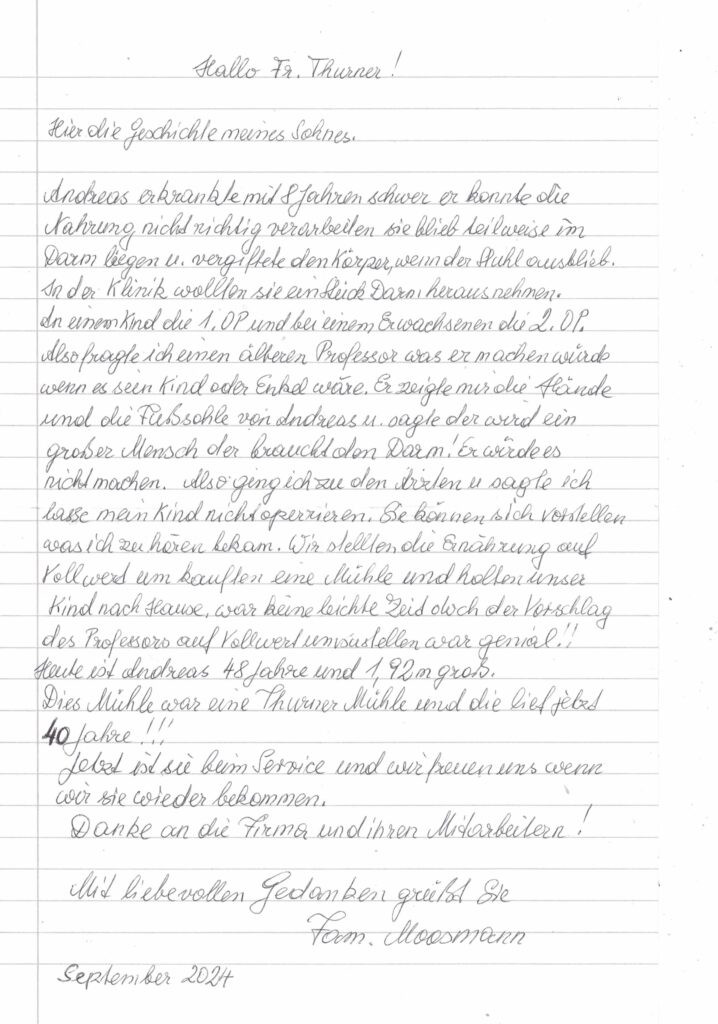 Hallo Fr. Thurner!
Hier die Geschichte meines Sohnes.
Andreas erkrankte mit 8 Jahren schwer er konnte die
Nahrung nicht richtig verarbeiten sie blieb teilweise im
Darm liegen u. vergiftete den Körper, wenn der Stuhl ausblieb.
In der Klinik wollten sie ein Stück Darm herausnehmen.
An einem Kind die 1. OP und bei einem Erwachsenen die 2. OP.
Also fragte ich einen älteren Professor was er machen würde
wenn es sein Kind oder Enkel wäre. Er zeigte mir die Hände
und die Fußsohle von Andreas u. sagte der wird ein
großer Mensch der braucht den Darm! Er würde es
nicht machen. Also ging ich zu den Ärzten u sagte ich
lasse mein Kind nicht operrieren. Sie können sich vorstellen
was ich zu hören bekam. Wir stellten die Ernährung auf
Vollwert um kauften eine Mühle und holten unser
Kind nach Hause, war keine leichte Zeit doch der Vorschlag
des Professors auf Vollwert umzustellen war genial!!
Heute ist Andreas 48 Jahre und 1,92 m groß.
Dies Mühle war eine Thurner Mühle und die lief jetzt
40 Jahre!!!
Jetzt ist sie beim Service und wir freuen uns wenn
wir sie wieder bekommen.
Danke an die Firma und ihren Mitarbeitern!
Mit liebevollen Gedanken grüßt Sie
Fam. Moosmann
September 2024